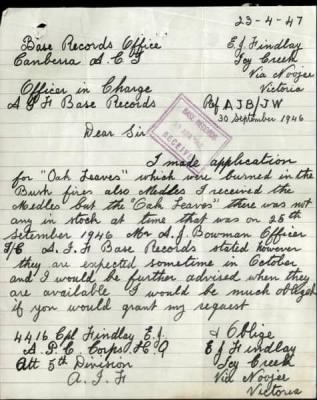 23-4-47
Base Records Office
E.J. Findlay
Canberra A.C.T
Icy Creek
Via Noojee
Officer in Charge
Victoria
A I F Base Records
Ref AJB/JW
30 September 1946
BASE RECORDS
RECEIVED
Dear Sir
I made application
for "Oak Leaves" which were burned in the
Bush fires also Medles I received the
Medles but the "Oak Leaves" there was not
any in stock at time that was on 25th
Setember 1946 Mr A.J. Bowman Officer
I/C A.I.F Base Records stated however
they are expected sometime in October
and I would be further advised when they
are available I would be much obligh
if you would grant my reqest
4416 Cpl Findlay E.J.
& Oblige
A.P.C. Corps H.Q
E J Findlay
Att 5th Division
Icy Creek
A.I.F
Via Noojee
Victoria